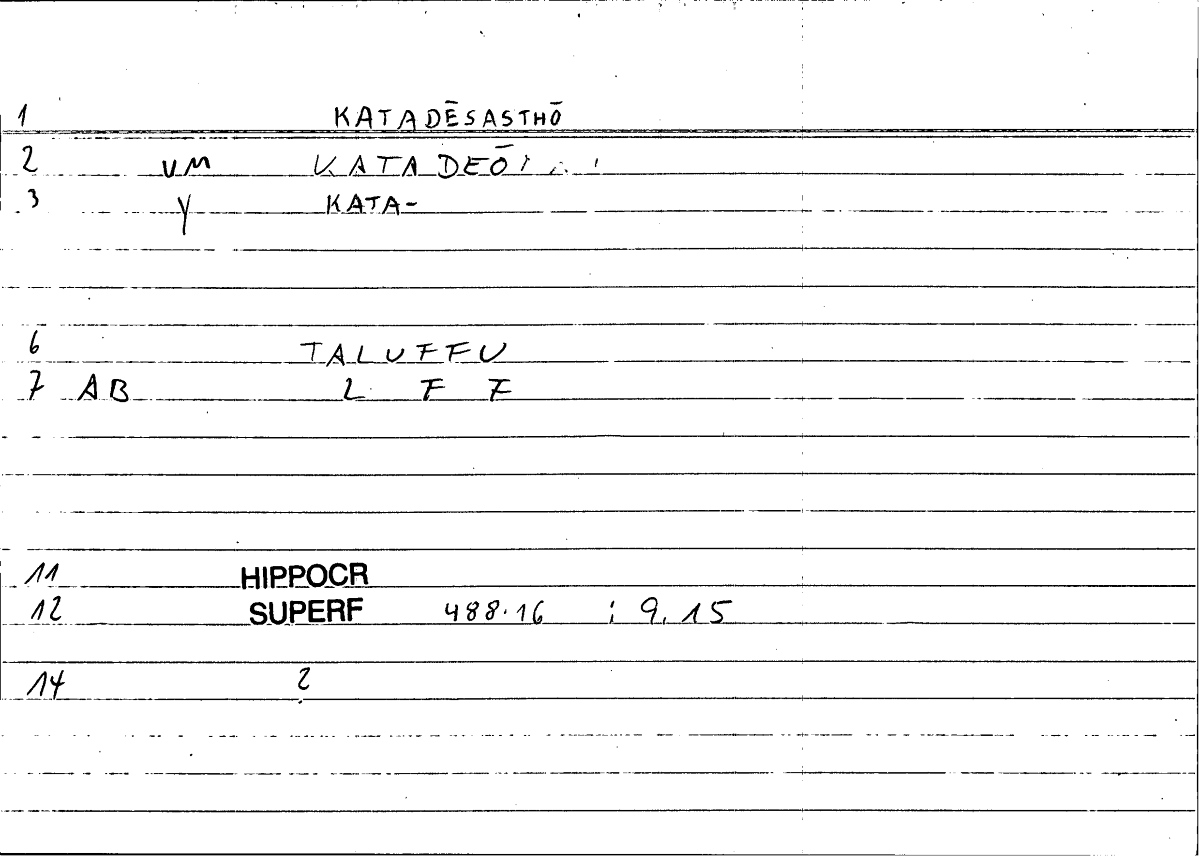 1 KATADĒSASTHŌ
2 VM KATADEŌ
3 Y KATA-
6 TALUFFU
7 AB L F F
11 HIPPOCR
12 SUPERF 488.16 : 9.15
14 ?